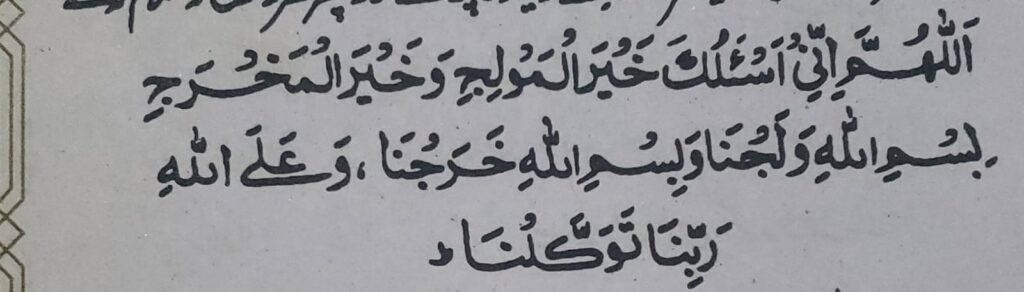 اَللّٰهُمَّ اِنِّیْ اَسْئَلُكَ خَیْرَ الْمَوْلِجِ وَخَیْرَ الْمَخْرَجِ
بِسْمِ اللّٰهِ وَلَجْنَا وَبِسْمِ اللّٰهِ خَرَجْنَا ، وَعَلَی اللّٰهِ
رَبِّنَا تَوَكَّلْنَا